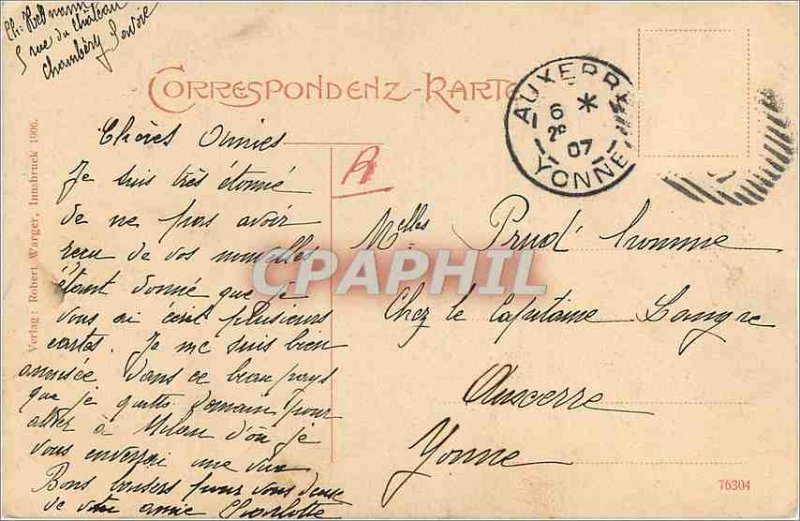 Ch. Hermann
5 rue du Château
Chambéry Savoie
CORRESPONDENZ-KARTE
AUXERRE
6 *
2e
07
YONNE
R
Chères Amies
Je suis très étonné
de ne pas avoir
reçu de vos nouvelles
étant donné que je
vous ai écrit plusieurs
cartes. Je me suis bien
amusée dans ce beau pays
que je quitte demain pour
aller à Milan d'où je
vous enverrai une vue
Bons baisers pour vous deux
de votre amie Charlotte
Melles Prud'homme
Chez le Capitaine Langre
Auxerre
Yonne
Verlag: Robert Warger, Innsbruck 1906.
76304
CPAPHIL